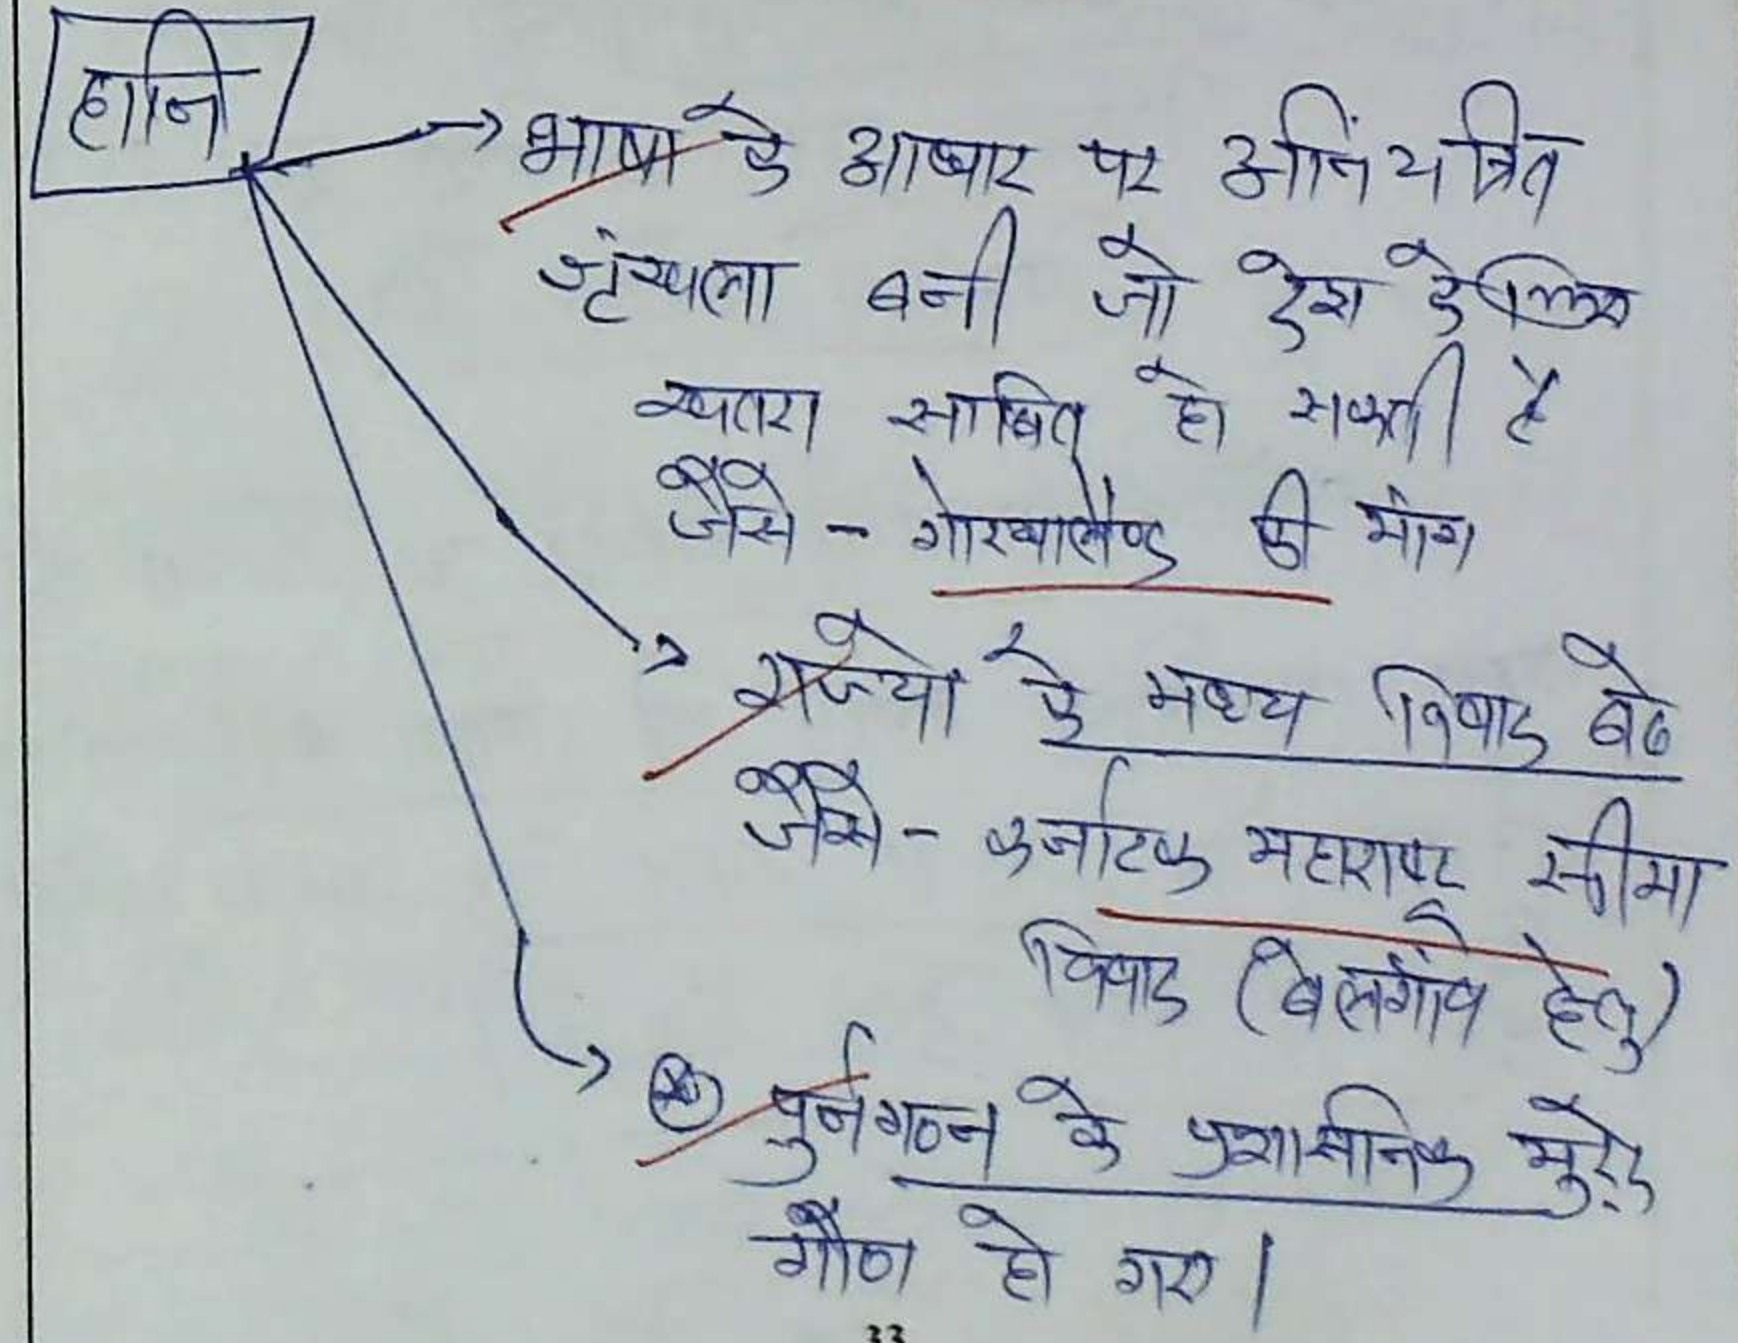 हानि
→ भाषा के आधार पर अनियंत्रित
श्रृंखला बनी जो देश के लिए
खतरा साबित हो सकती है
जैसे - गोरखालैण्ड की मांग
→ राज्यो के मध्य विवाद बढे
जैसे - कर्नाटक महाराष्ट्र सीमा
विवाद (बेलगाँव हेतु)
→ पुर्नगठन के प्रशासनिक मुद्दे
गौण हो गए।
33